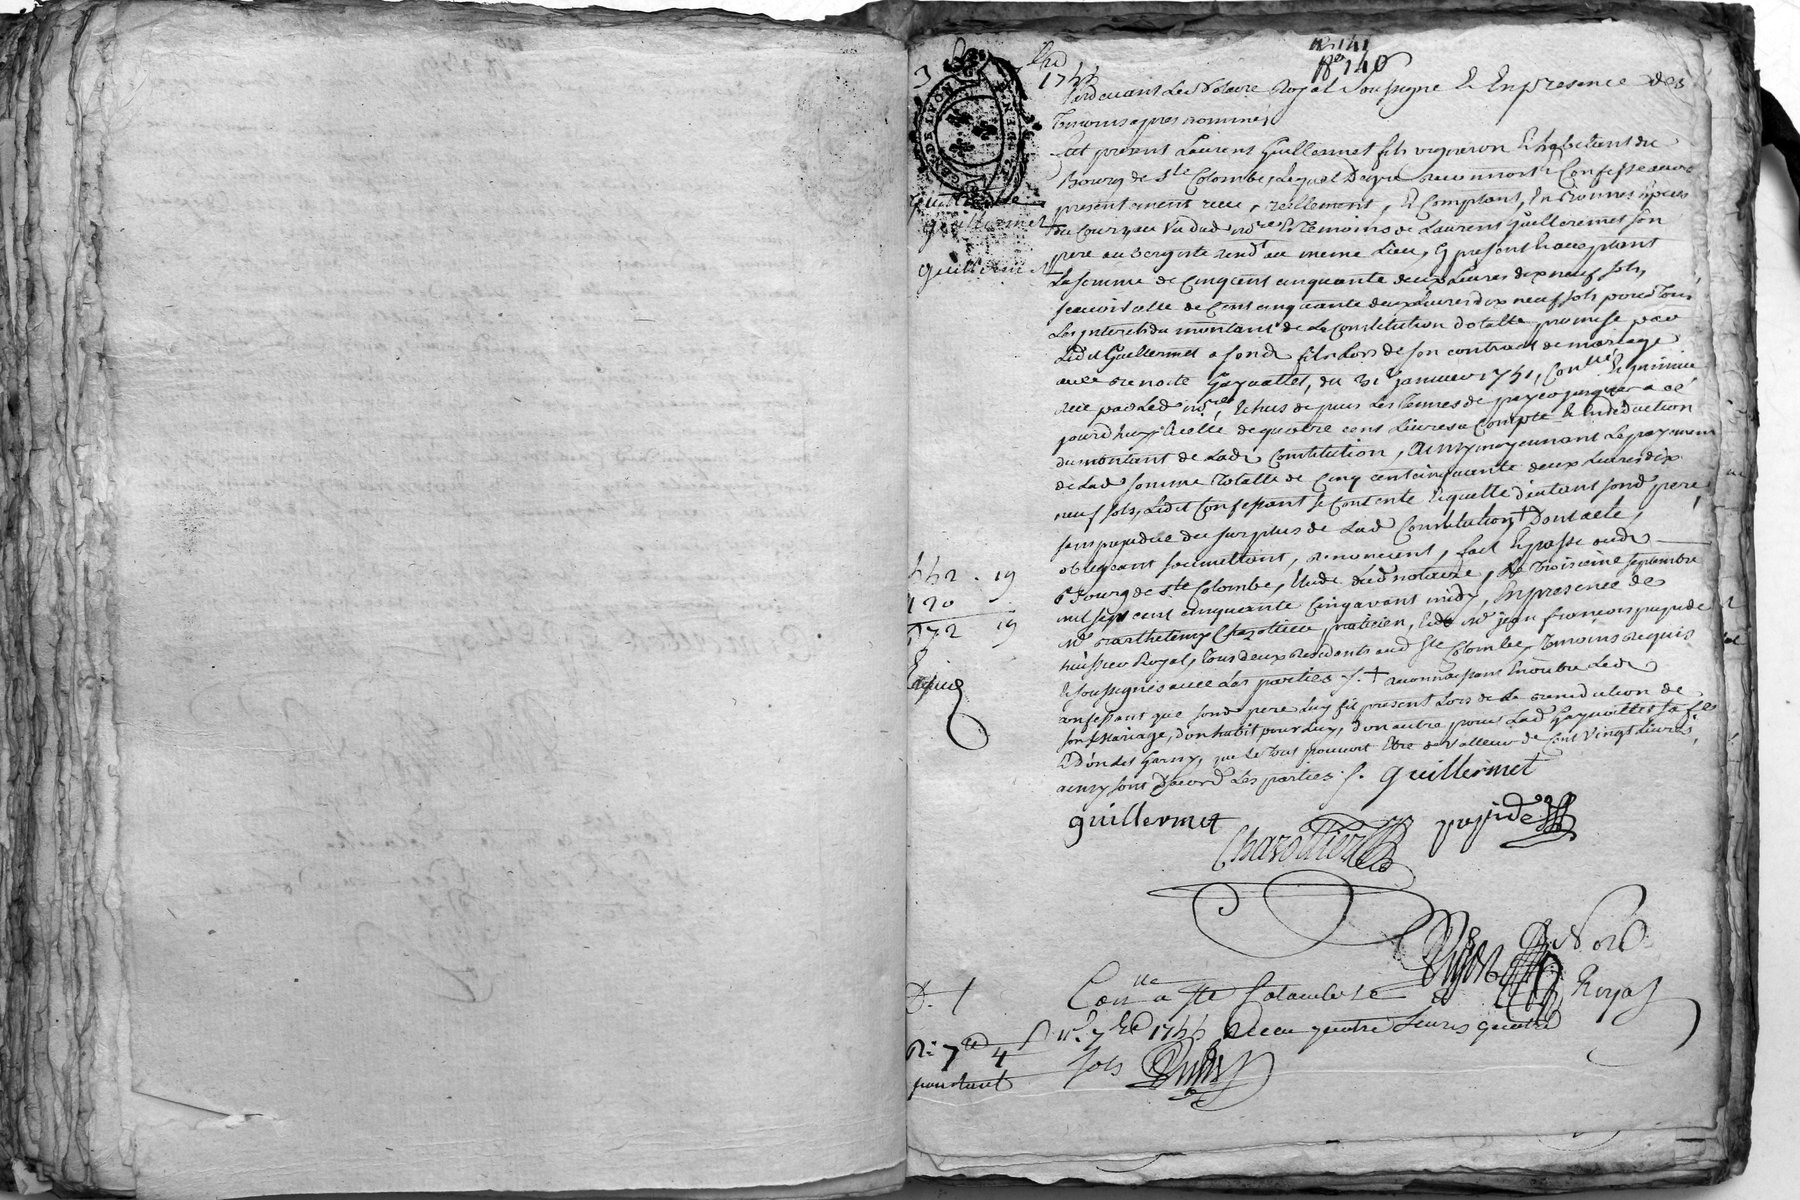 n° 141
N° 140
3 7bre
1755
GEN. DE LYON
Quittance
guillermet
guillermet
Pardevant Le Notaire Royal Soussigné & En presence des
Temoins apres nommés
fut present Laurent Guillermet fils vigneron & habitant du
Bourg de Ste Colombe, Lequel De gré reconnoit & Confesse avoir
presentement receu, reellement, & Comptant, En Bonnes especes
du Cours, au Vu dud. nore & Temoins de Laurent Guillermet Son
pere aussy vigneron resdt au meme Lieu, cy present & acceptant
La Somme de Cinq cent cinquante deux Livres dix neuf Sols,
scavoir celle de Cent cinquante deux Livres dix neuf Sols pour Tous
Les interets du montant de La Constitution dotalle promise par
Led. Guillermet a sond. fils Lors de son contract de mariage
avec Benoite Gayvallet, du 31 Janvier 1751, Conllé &
receu par Led. nore, Echus depuis Les Termes de payer jusques a ce
jourd'huy, & celle de quatre cent Livres a Compte & En deduction
du montant de Lad. Constitution, Ainsy moyennant Le payement
de Lad. Somme Totalle de Cinq cent cinquante deux Livres dix
neuf Sols, Ledit Confessant se Contente & quitte d'autant sond. pere
sans prejudice du surplus de Lad. Constitution + Dont acte,
obligeant soumettant, renonceant, fait & passé aud.
Bourg de Ste Colombe, Etude dud. notaire, Le Troisieme septembre
mil sept cent cinquante Cinq avant midy, En presence de
Me Barthelemy Chazottier praticien, & de Me jean françois pupide
huissier Royal, Tous deux residants aud. Ste Colombe, Temoins requis
& soussignés avec Les parties ./. + reconnoissant En outre Led.
confessant que sond. pere Luy fit present Lors de La
son Mariage, d'un habit pour Luy, d'un autre pour Lad. Gayvallet sa
& D'un Lit Garny, que le Tout pouvoit Etre de valleur de Cent Vingt Livres,
ainsy sont D'acord Les parties ./. guillermet
guillermet
Chazottier pupide
Nore
Royal
552 . 19
120
672 19
Conllé a Ste Colombe Le
11e 7bre 1755 Receu quatre Livres quatre
sols